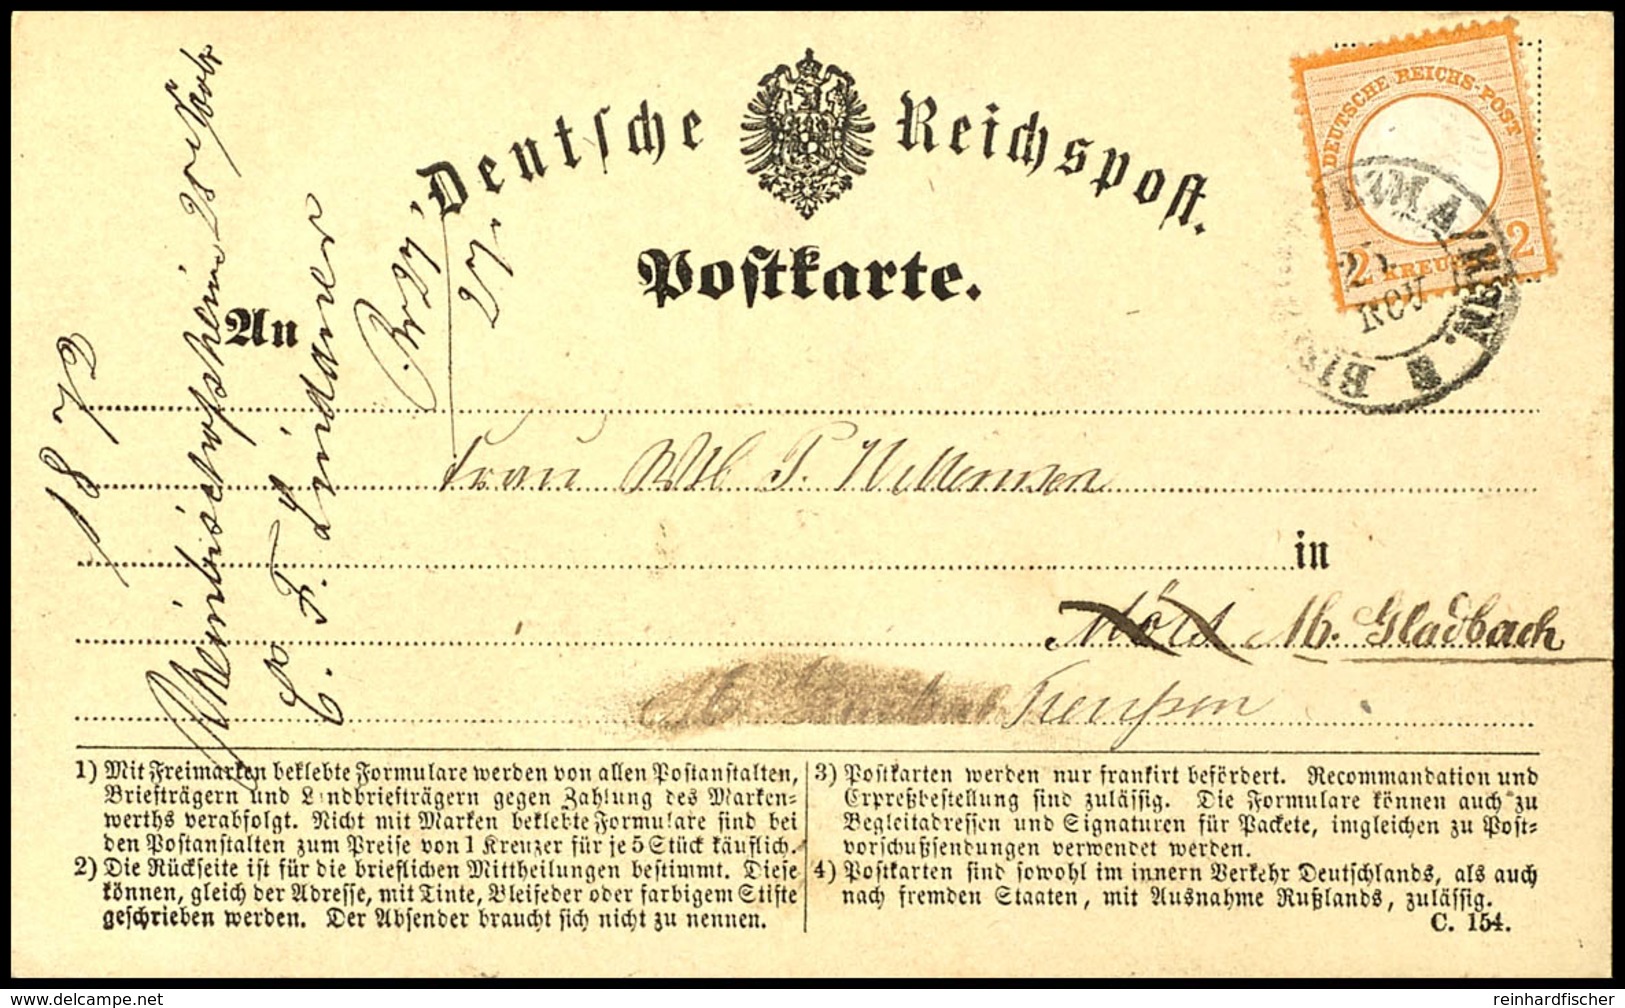 Deutsche Reichspost.
Postkarte.
DEUTSCHE REICHS-POST
2 KREUZER 2
25
NOV
An
187
E. F. Lindauer
Frau Wtb P.
in
M. Gladbach
Preußen
1) Mit Freimarken beklebte Formulare werden von allen Postanstalten,
Briefträgern und Landbriefträgern gegen Zahlung des Marken-
werths verabfolgt. Nicht mit Marken beklebte Formulare sind bei
den Postanstalten zum Preise von 1 Kreuzer für je 5 Stück käuflich.
2) Die Rückseite ist für die brieflichen Mittheilungen bestimmt. Diese
können, gleich der Adresse, mit Tinte, Bleifeder oder farbigem Stifte
geschrieben werden. Der Absender braucht sich nicht zu nennen.
3) Postkarten werden nur frankirt befördert. Recommandation und
Expreßbestellung sind zulässig. Die Formulare können auch zu
Begleitadressen und Signaturen für Packete, imgleichen zu Post-
vorschußsendungen verwendet werden.
4) Postkarten sind sowohl im innern Verkehr Deutschlands, als auch
nach fremden Staaten, mit Ausnahme Rußlands, zulässig.
C. 154.
delcampe.net
reinhardfischer